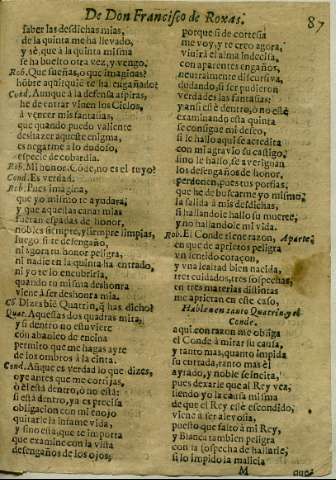 De Don Francisco de Roxas.
87
saber las desdichas mias,
de la quinta me ha llevado,
y sè, que à la quinta misma
se ha buelto otra vez, y vengo.
Rob. Que sueñas, o que imaginas?
hòbre aqui, quiè te ha engañado?
Cond. Aunque à la defensa aspiras,
he de entrar vinen los Cielos,
à vencer mis fantasias,
que quando puedo valiente
deshazer aqueste enigma,
es negarme a lo dudoso,
especie de cobardia.
Rob. Mi honor, Còde, no es el tuyo?
Cond. Es verdad.
Rob. Pues imagina,
que yo mismo te ayudara,
y que aquestas canas mias
fueran espadas de honor,
nobles siempre, y siempre limpias,
luego si te desengaño,
ni agora tu honor peligra,
ni nadie en la quinta ha entrado,
ni yo te lo encubriria,
quando tu misma deshonra
viene à ser deshonra mia.
Cò. Dizes biè Quatrin, q̃ has dicho?
Quat. Aquestas dos quadras mira,
y si dentro no estuviere
con abanico de encina
permito que me hagas ayre
de los ombros à la cinta.
Cond. Aunque es verdad lo que dizes,
oye antes que me corrijas,
ò èl està dentro, o no està:
si està dentro, ya es precisa
obligacion con mi enojo
quitarle la infame vida,
y sino està, que te importa
que examine con la vista
desengaños de los ojos,
porque si de cortesia
me voy, y te creo agora,
vivirà el alma indecisa,
con aparentes engaños,
neutralmente discursiva,
dudando, si ser pudieron
verdades las fantasias:
y ansi estè dentro, ò no estè
examinando esta quinta
se consigue mi deseo,
si le hallo aqui se acredita
con mi agravio su castigo;
sino le hallo, se averiguan
los desengaños de honor,
perdonen, pues tus porfias,
que he de buscarme yo mismo
la salida à mis desdichas,
si hallandole hallo su muerte,
y no hallandole mi vida.
Rob. El Conde tiene razon, Aparte.
en que de aprietos peligra
vn señedo coraçon,
y vna lealtad bien nacida,
tres cuidados, tres sospechas,
en tres materias distintas
me aprietan en este caso,
Hablen en tanto Quatrin, y el
Conde.
aqui con razon me obliga
el Conde à mirar su causa,
y tanto mas, quanto impida
su entrada, tanto mas èl
ayrado, y noble se incita,
pues dexarle que al Rey vea,
siendo yo la causa misma
de que el Rey estè escondido,
viene a ser alevosia,
puesto que falto à mi Rey,
y Bianca tambien peligra
con la sospecha de hallarle;
si lo impido la malicia
M
que